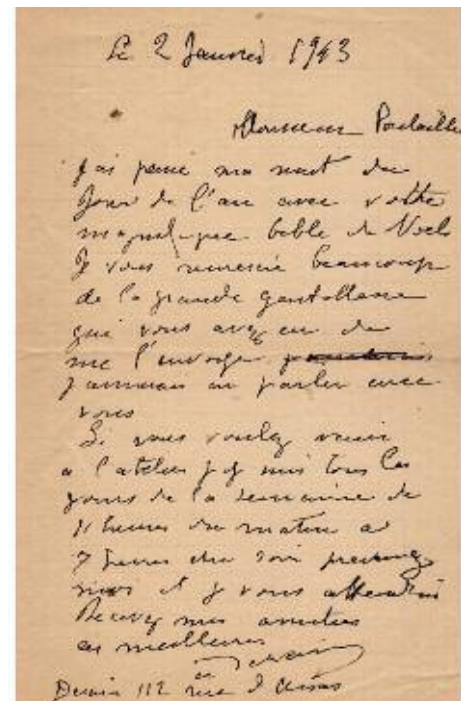 Le 2 Janvier 1943
Monsieur Poulaille
J'ai passé ma nuit du
Jour de l'an avec votre
magnifique bible de Noels
Je vous remercie beaucoup
de la grande gentillesse
que vous avez eu de
me l'envoyer
J'aimerais en parler avec
vous
Si vous voulez venir
a l'atelier j'y suis tous les
jours de la semaine de
11 heures du matin a
7 heures du soir prevenez
moi et je vous attendrai
Recevez mes amitiés
les meilleures
a Derain
Derain 112 rue d'